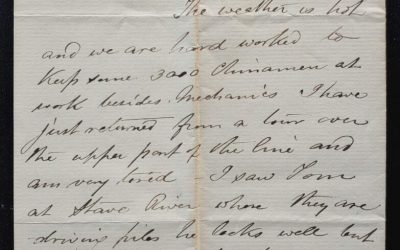 The weather is hot
and we are hard worked to
keep some 3000 Chinamen at
work besides Mechanics I have
just returned from a tour over
the upper part of the line and
am very tired - I saw Tom
at Stave River where they are
driving piles he looks well but